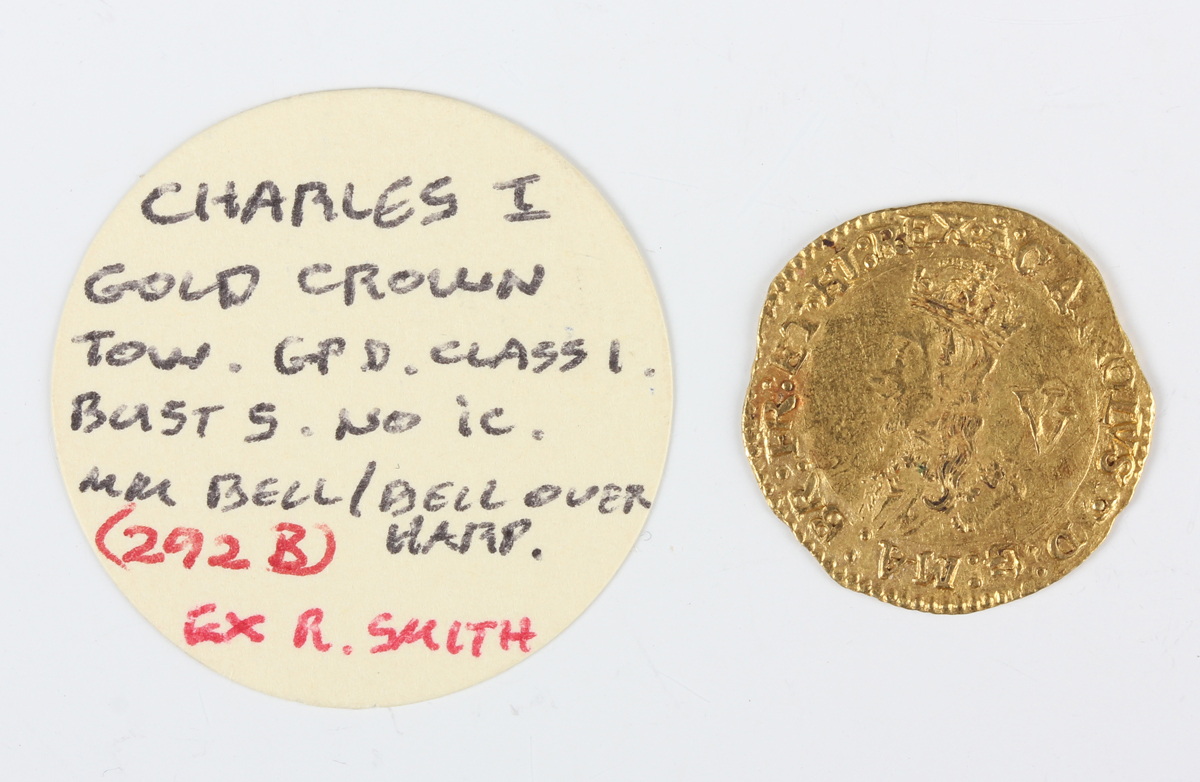 CHARLES I
GOLD CROWN
TOW. GP D. CLASS 1.
BUST 5. NO IC.
MM BELL/BELL OVER
HARP.
(292 B)
EX R. SMITH
CAROLUS D:G:MA BR:FR:ET HI:REX
V